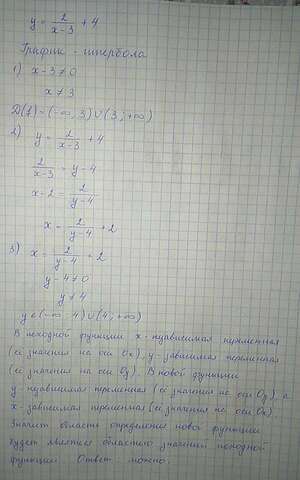 y = 2/(x-3) + 4
График - гипербола
1) x-3≠0
x ≠ 3
D(f) = (-∞; 3) ∪ (3; +∞)
2) y = 2/(x-3) + 4
2/(x-3) = y-4
x-2 = 2/(y-4)
x = 2/(y-4) + 2
3) x = 2/(y-4) + 2
y-4≠0
y ≠ 4
y ∈ (-∞; 4) ∪ (4; +∞)
В исходной функции x - независимая переменная
(ее значения на оси Ox), y - зависимая переменная
(ее значения на оси Oy). В новой функции
y - независимая переменная (ее значения на оси Oy), а
x - зависимая переменная (ее значения на оси Ox)
Значит область определения новой функции
будет являться областью значений исходной
функции. Ответ: можно.